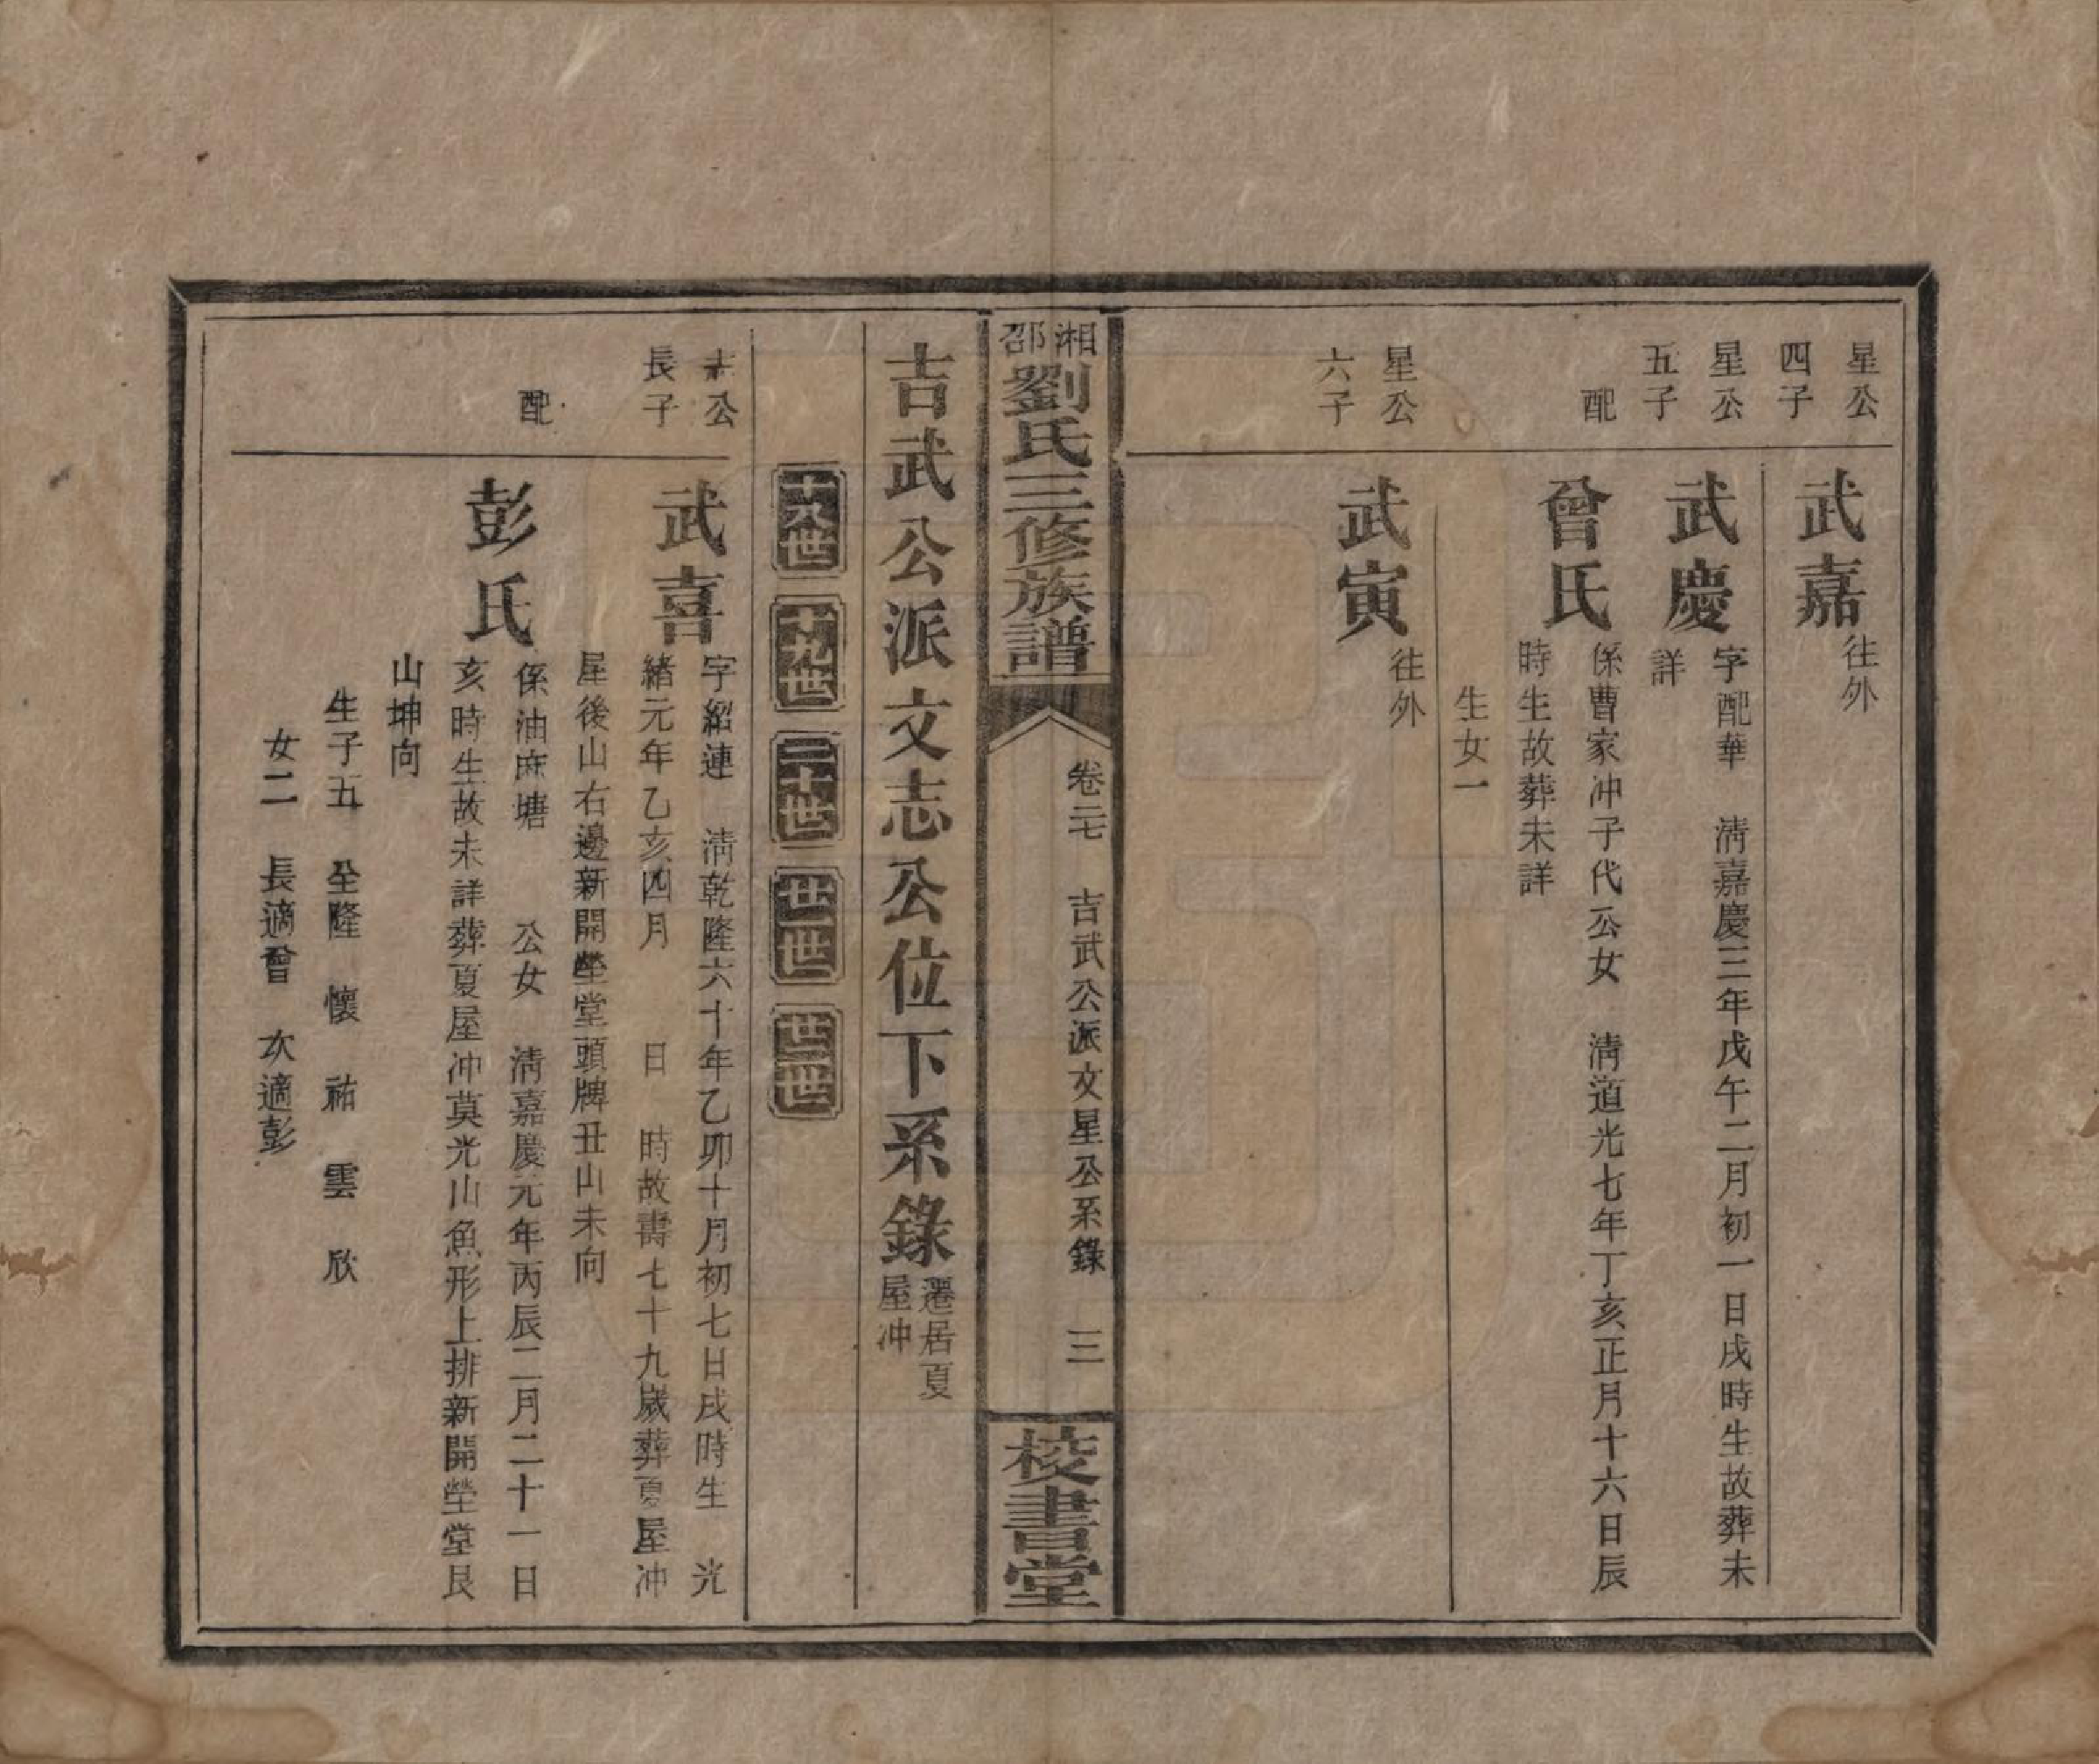 星公
四子
武嘉
往外
星公
五子
武慶
字配華　清嘉慶三年戊午二月初一日戌時生故葬未
詳
配
曾氏
係曹家冲子代公女　清道光七年丁亥正月十六日辰
時生故葬未詳
生女一
星公
六子
武寅
往外
湘邵劉氏三修族譜
卷二七　吉武公派文星公系錄　三
校書堂
吉武公派文志公位下系錄
遷居夏
屋冲
十八世　十九世　二十世　廿一世　廿二世
志公
長子
武喜
字紹連　清乾隆六十年乙卯十月初七日戌時生　光
緒元年乙亥四月　日　時故壽七十九歲葬夏屋冲
屋後山右邊新開塋堂頭牌丑山未向
配
彭氏
係油麻塘　公女　清嘉慶元年丙辰二月二十一日
亥時生故未詳葬夏屋冲莫光山魚形上排新開塋堂艮
山坤向
生子五　全隆　懷　祐　雲　欣
女二　長適曾　次適彭